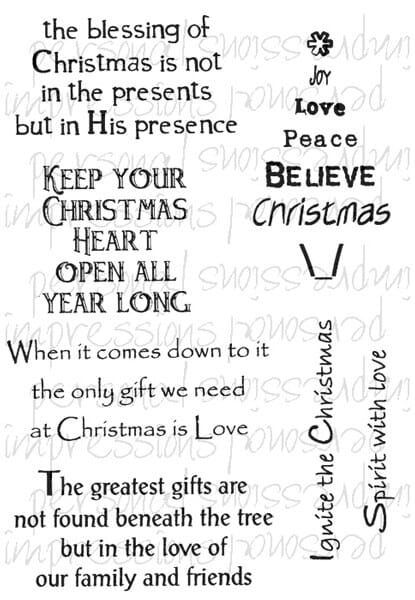 the blessing of
Christmas is not
in the presents
but in His presence
KEEP YOUR
CHRISTMAS
HEART
OPEN ALL
YEAR LONG
When it comes down to it
the only gift we need
at Christmas is Love
The greatest gifts are
not found beneath the tree
but in the love of
our family and friends
Joy
Love
Peace
BELIEVE
Christmas
Ignite the Christmas
Spirit with love
personal impressions